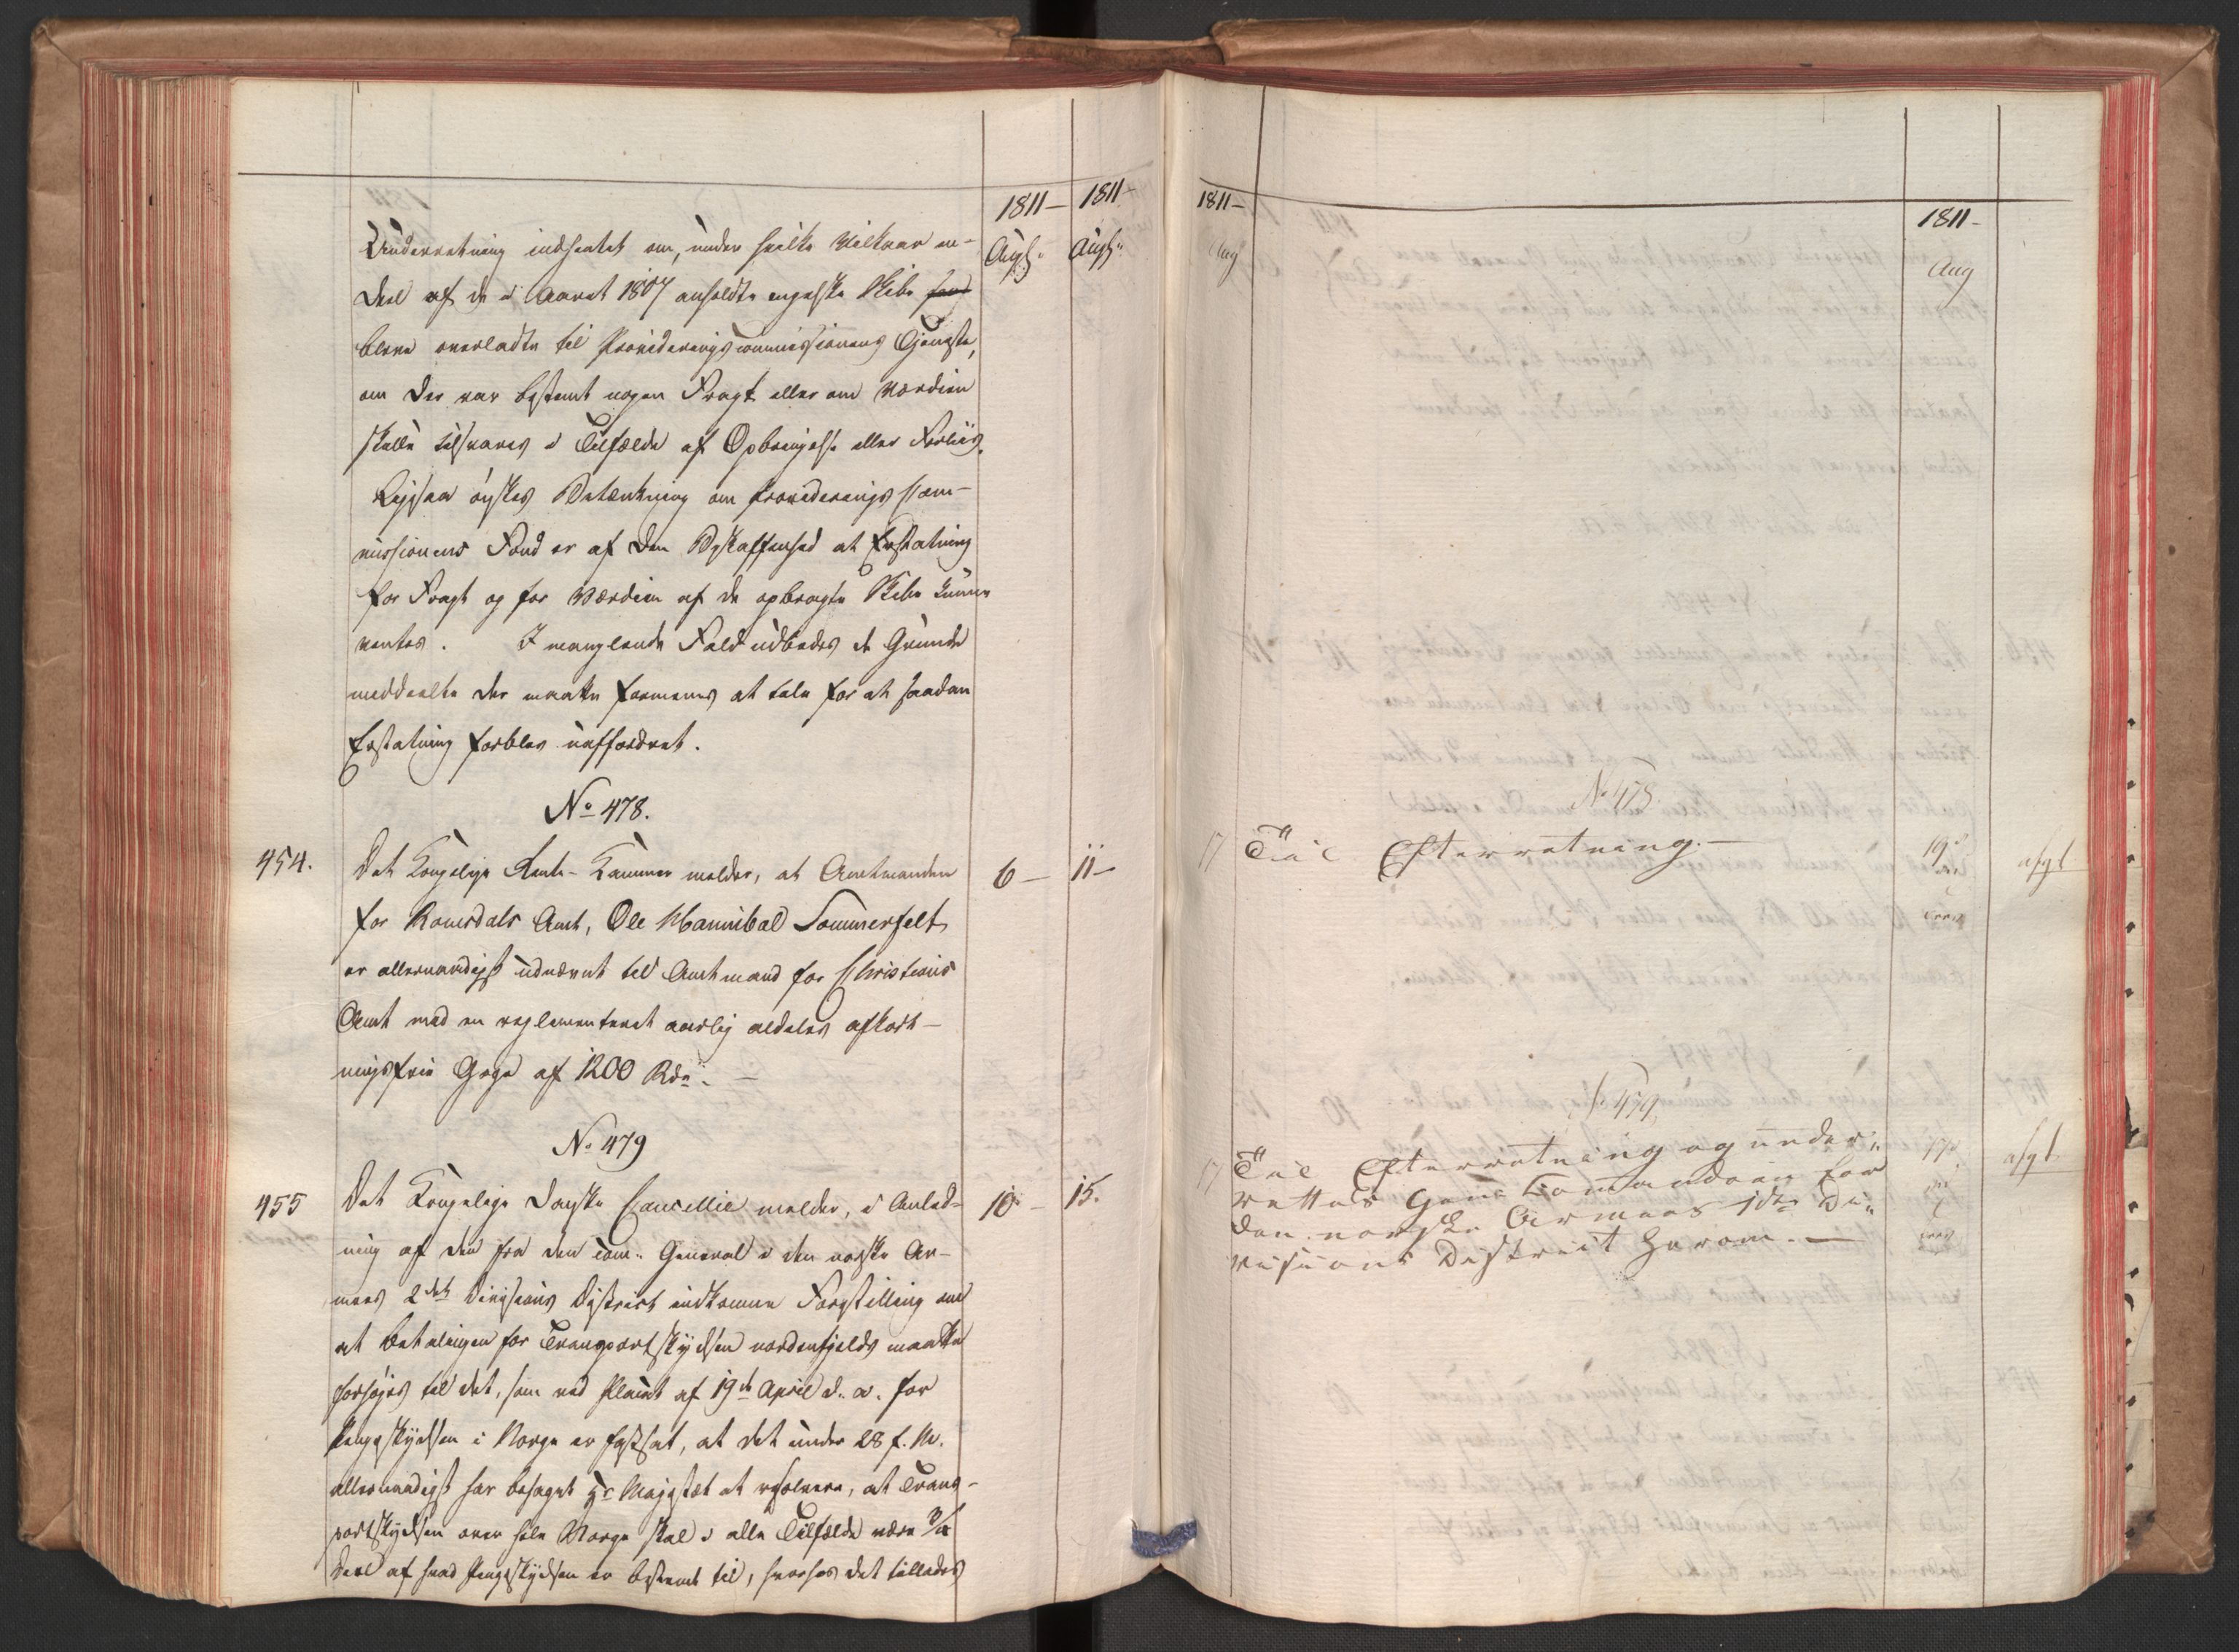 1811 — 1811 —
Augs: Augs:
Underretning indhentet om, under hvilke Vilkaar en-
deel af de i Aaret 1807 anholdte engelske Skibe
bleve overladte til Provideringscommissionens Tjeneste,
om der var bestemt nogen Fragt eller om Værdien
skulle tilsvares i Tilfælde af Opbringelse eller Forliis.
Ligesaa øskes Betænkning om Provideringscom-
missionens Fond er af den Beskaffenhed at Erstatning
for Fragt og for Værdien af de opbragte Skibe kunne
ventes. I manglende Fald udbedes de Grunde
meddeelte der maatte formenes at tale for at saadan
Erstatning forblev uaffordret.
No 478.
454. Det Kongelige Rente-Kammer melder, at Amtmanden 6 — 11 —
for Romsdals Amt, Ole Hannibal Sommerfelt
er allernaadigst udnævnt til Amtmand for Christians
Amt med en reglementeret aarlig aldeles afkort-
ningsfrie Gage af 1200 Rdr. —
No 479
455 Det Kongelige Danske Cancellie melder, i Anled- 10 — 15.
ning af den fra den com: General i den norske Ar-
mees 2det Divisions District indkomne Forestilling om
at betalingen for Transportskydsen nordenfjelds maatte
forhøjes til det, som ved Placat af 19de April d. a. for
i Norge er fastsat, at det under 28 f. M.
allernaadigst har behaget Hs Majestæt at resolvere, at Trans-
portskydsen over hele Norge skal i alle Tilfælde være 3/4
Deel af hvad er bestemt til, hvorhos det tillades
1811 —
Aug
1811 —
Aug
No 478.
17 Til Efterretning. — 19de afgt
No 479.
17 Til Efterretning og under- 17de afgt
rettes Gen: Commandoen for
den norske Armees 1ste Di-
visions District herom. —